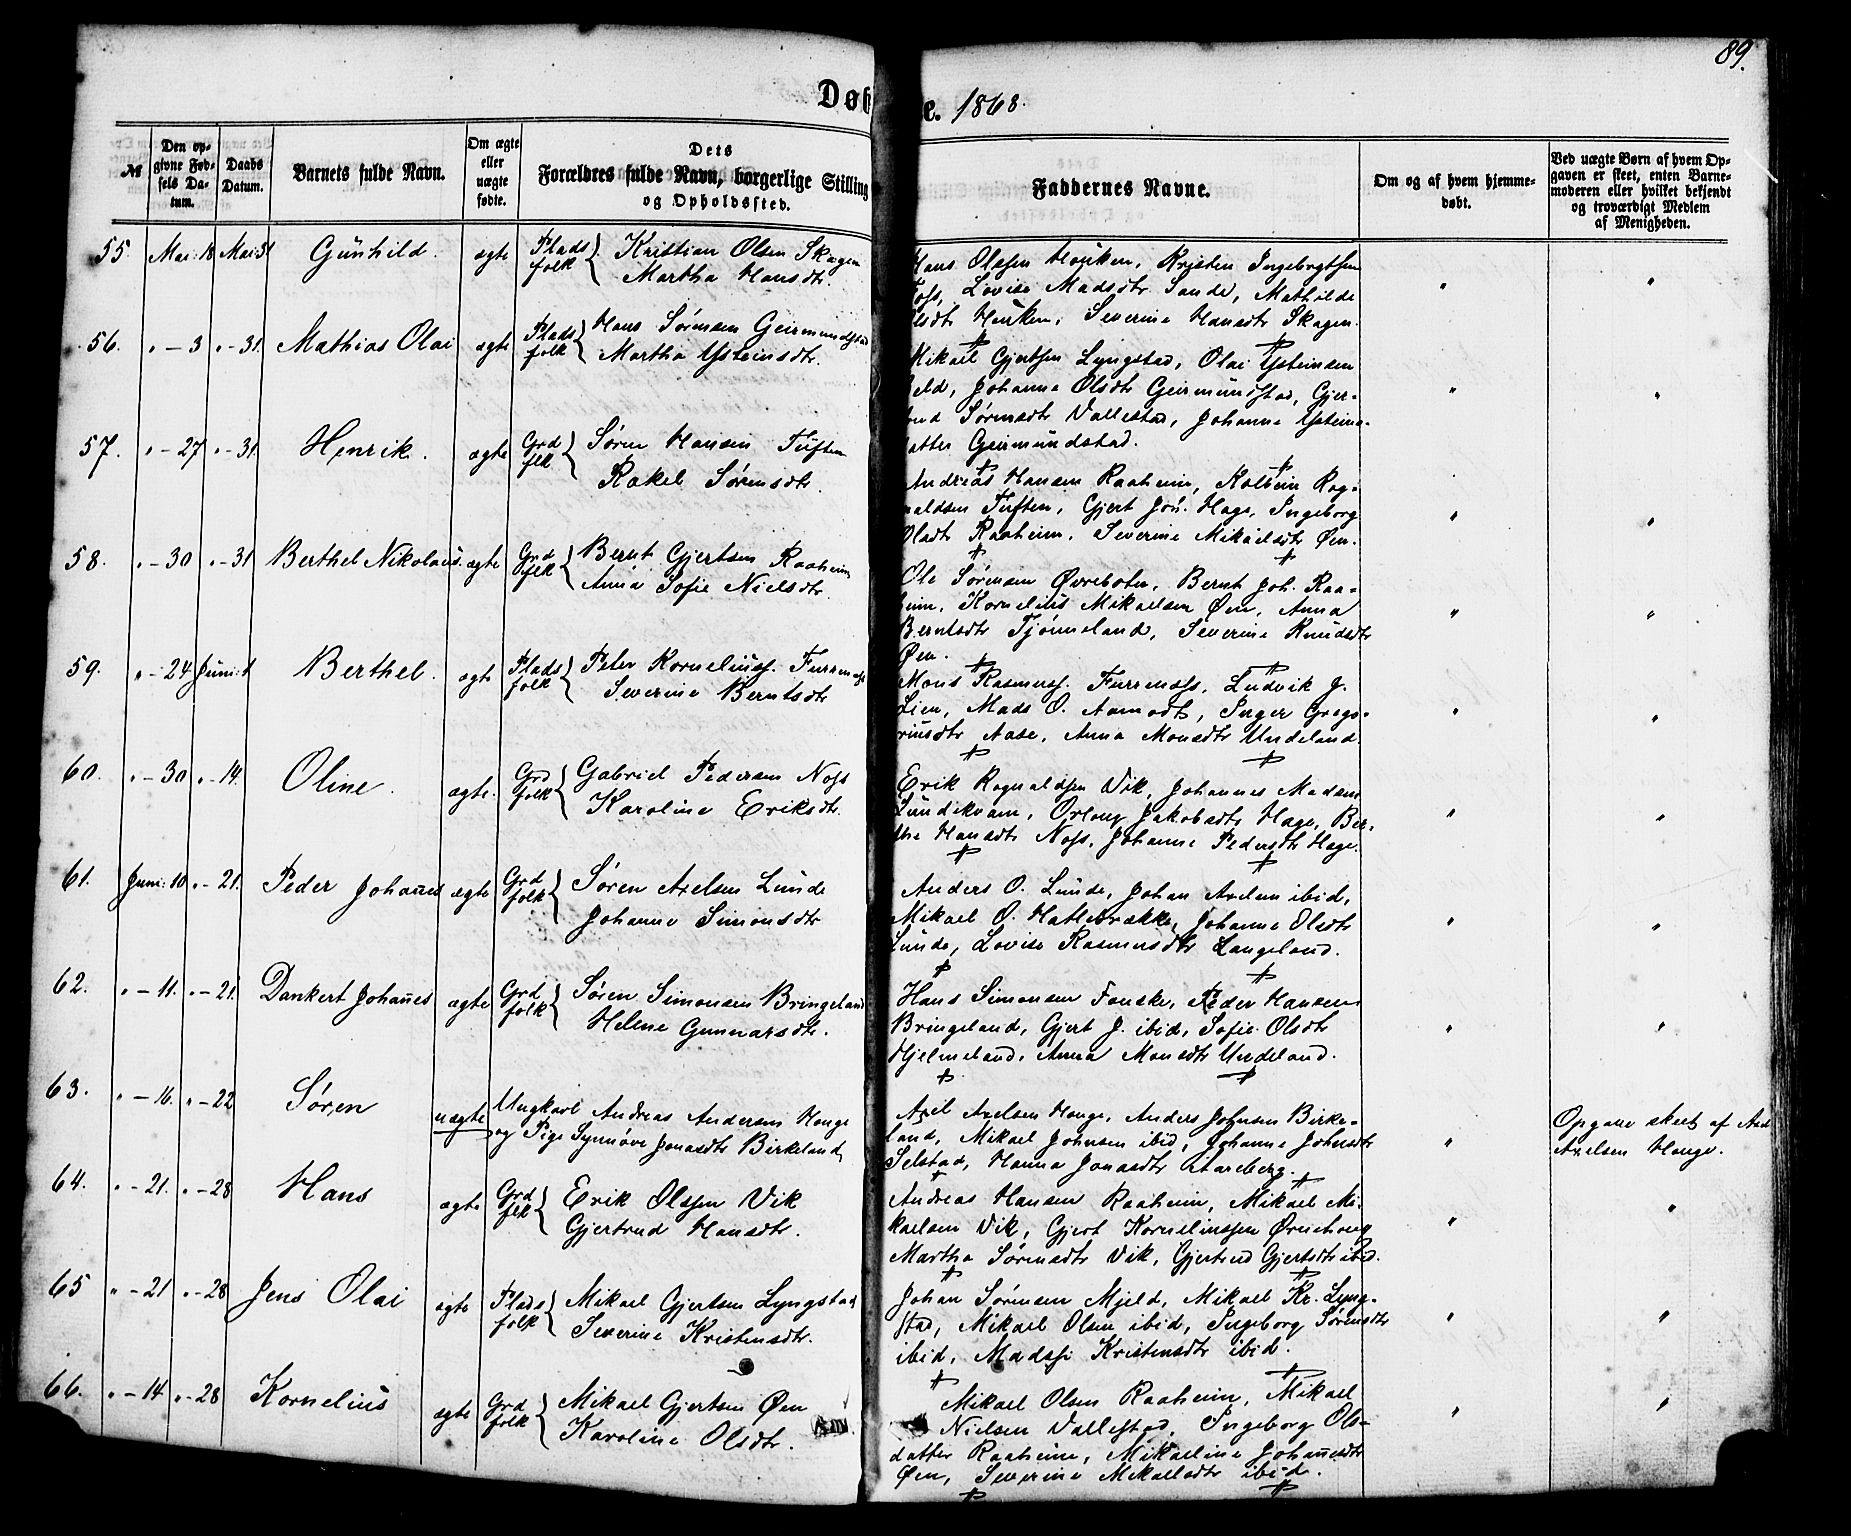 89.
Døb
e. 1868.
№
Den op-
givne Fød-
sels Da-
tum.
Daabs
Datum.
Barnets fulde Navn.
Om ægte
eller
uægte
fødte.
Dets
Forældres fulde Navn, borgerlige Stilling
og Opholdssted.
Faddernes Navne.
Om og af hvem hjemme-
døbt.
Ved uægte Børn af hvem Op-
gaven er skeet, enten Barne-
moderen eller hvilket bekjendt
og troværdigt Medlem
af Menigheden.
55. Mai: 18 Mai: 31 Gunhild. ægte Plads folk Kristian Olsen Skagen
Martha Hansdtr.
Hans Olssen Houken, Kristen Ingebrgtsen
Foss, Lovise Madsdtr Sande, Mathilde
Olsdtr Houken, Severine Hansdtr Skagen.
56. " - 3 " - 31. Mathias Olai ægte Plads folk Hans Sørensen Geirmundstad
Martha Ysteinsdtr.
Mikael Gjertsen Lyngstad, Olai Ysteinsen
eld, Johanne Olsdtr Geirmundstad, Gjer-
Sørensdtr Vallestad, Johanne Ysteins-
datter Geirmundstad.
57. " - 27 " - 31. Henrik. ægte Grd flk Søren Hansen Tuften
Rakel Sørensdtr.
Andreas Hansen Raaheim, Kolbein Rag-
naldsen Tuften, Gjert Joh. Hage, Ingeborg
Olsdtr Raaheim, Severine Mikaelsdtr Øen.
58. " - 30 " - 31 Berthel Nikolaus. ægte Grd flk Bernt Gjertsen Raaheim
Anna Sofie Nielsdtr.
Ole Sørensen Øvrebotn, Bernt Joh. Raa-
heim, Kornelius Mikaelsen Øen, Anna
Berntsdtr Tjønneland, Severine Knudsdtr
Øen.
59. " - 24 Juni: 1 Berthel. ægte Plads folk Peter Korneliuss. Furenæss
Severine Berntsdtr
Mons Rasmuss. Furrenæss, Ludvik J.
Lien, Mads O. Aamodt, Inger Grego-
riusdtr Aase, Anna Monsdtr Undeland.
60. " - 30 " - 14. Oline. ægte. Grd folk Gabriel Pedersen Noss
Karoline Eriksdtr.
Erik Ragnaldsen Vik, Johannes Madsen
Sundekvam, Orlaug Jakobsdtr Hage, Ber-
the Hansdtr Noss, Johanne Pedersdtr Hage.
61. Juni: 10 " - 21. Peder Johannes ægte Grd folk Søren Axelsen Lunde
Johanne Simonsdtr
Anders O. Lunde, Johan Axelsen ibid,
Mikael O. Hatlebrække, Johanne Olsdtr
Lunde, Lovise Rasmusdtr Langeland.
62. " - 11. " - 21. Dankert Johannes ægte Grd folk Søren Simonsen Bringeland
Helene Gunnarsdtr.
Hans Simonsen Fonske, Peder Hansen
Bringeland, Gjert J. ibid, Sofie Olsdtr
Hjelmeland, Anna Monsdtr Undeland.
63. " - 16. " - 22 Søren uægte Ungkarl Andreas Andersen Houge
og Pige Synnøve Jonasdtr Birkeland,
Axel Axelsen Houge, Anders Johnsen Birke-
land, Mikael Johnsen ibid, Johanne Johnsdtr
Selstad, Hanna Jonasdtr Aareberg.
Opgave skeet af Axel
Axelsen Houge.
64. " - 21. " - 28 Hans ægte Grd flk Erik Olssen Vik
Gjertrud Hansdtr.
Andreas Hansen Raaheim, Mikael Mi-
kaelsen Vik, Gjert Korneliussen Ørnehaug
Martha Sørensdtr Vik, Gjertrud Gjertsdtr ibid.
65 " - 21 " - 28 Jens Olai ægte Plads folk Mikael Gjertsen Lyngstad
Severine Kristensdtr.
Johan Sørensen Mjeld, Mikael Kr. Lyng-
stad, Mikael Olsen ibid, Ingeborg Sørensdtr
ibid, Madssi Kristensdtr ibid.
66. " - 14 " - 28 Kornelius ægte Grd folk Mikael Gjertsen Øen
Karoline Olsdtr.
Mikael Olsen Raaheim, Mikael
Nielsen Vallestad, Ingeborg Ols-
datter Raaheim, Mikaeline Johannesdtr
Øen, Severine Mikaelsdtr ibid.